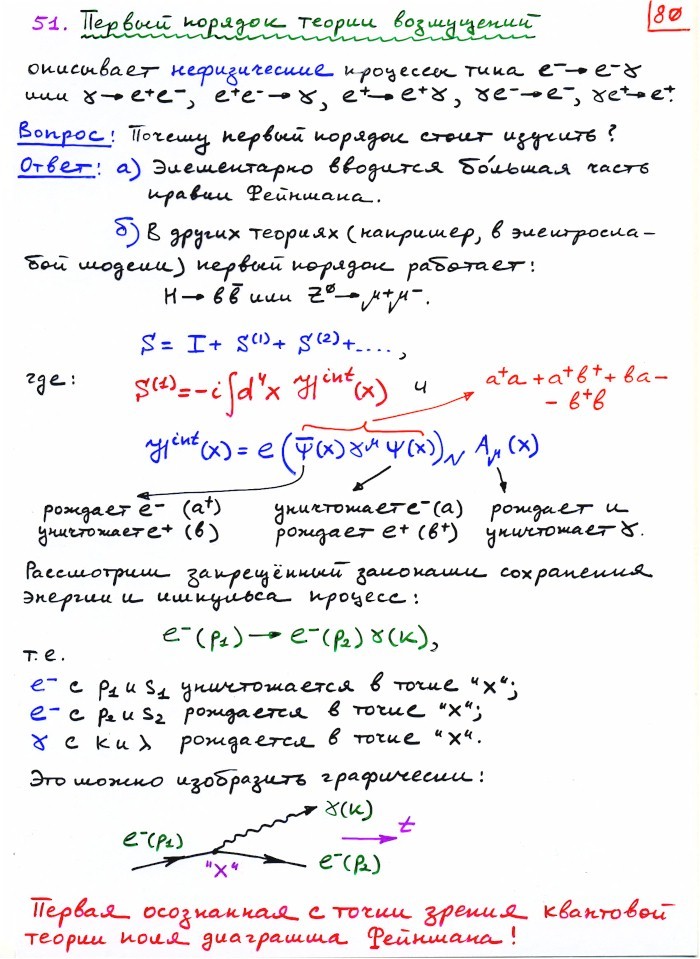 51. Первый порядок теории возмущений
80
описывает нефизические процессы типа e⁻→e⁻γ
или γ→e⁺e⁻, e⁺e⁻→γ, e⁺→e⁺γ, γe⁻→e⁻, γe⁺→e⁺.
Вопрос: Почему первый порядок стоит изучить?
Ответ: а) Элементарно вводится бо́льшая часть
правил Фейнмана.
б) В других теориях (например, в электросла-
бой модели) первый порядок работает:
H→bb̄ или Z⁰→μ⁺μ⁻.
S = I + S⁽¹⁾ + S⁽²⁾ + ....,
где: S⁽¹⁾ = -i∫d⁴x ℋⁱⁿᵗ(x) и a⁺a + a⁺b⁺ + ba -
- b⁺b
ℋⁱⁿᵗ(x) = e (Ψ̄(x) γ^μ Ψ(x))_N A_μ(x)
рождает e⁻ (a⁺) уничтожает e⁻ (a) рождает и
уничтожает e⁺ (b) рождает e⁺ (b⁺) уничтожает γ.
Рассмотрим запрещённый законами сохранения
энергии и импульса процесс:
e⁻(p₁) → e⁻(p₂) γ(k),
т.е.
e⁻ с p₁ и s₁ уничтожается в точке "x";
e⁻ с p₂ и s₂ рождается в точке "x";
γ с k и λ рождается в точке "x".
Это можно изобразить графически:
γ(k)
e⁻(p₁) t
"x" e⁻(p₂)
Первая осознанная с точки зрения квантовой
теории поля диаграмма Фейнмана!